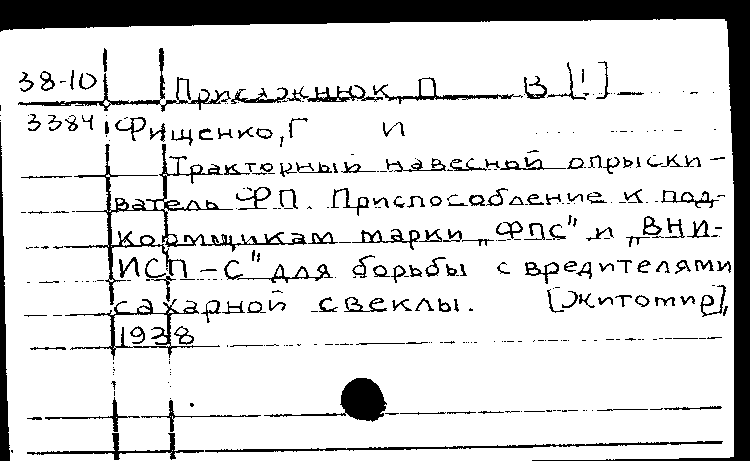 38-10 Присяжнюк, П В [!]
3384 Фищенко, Г И
Тракторный навесной опрыски-
ватель ФП. Приспособление к под-
кормщикам марки „ФПС" и „ВНИ-
ИСП-С" для борьбы с вредителями
сахарной свеклы. [Житомир],
1938